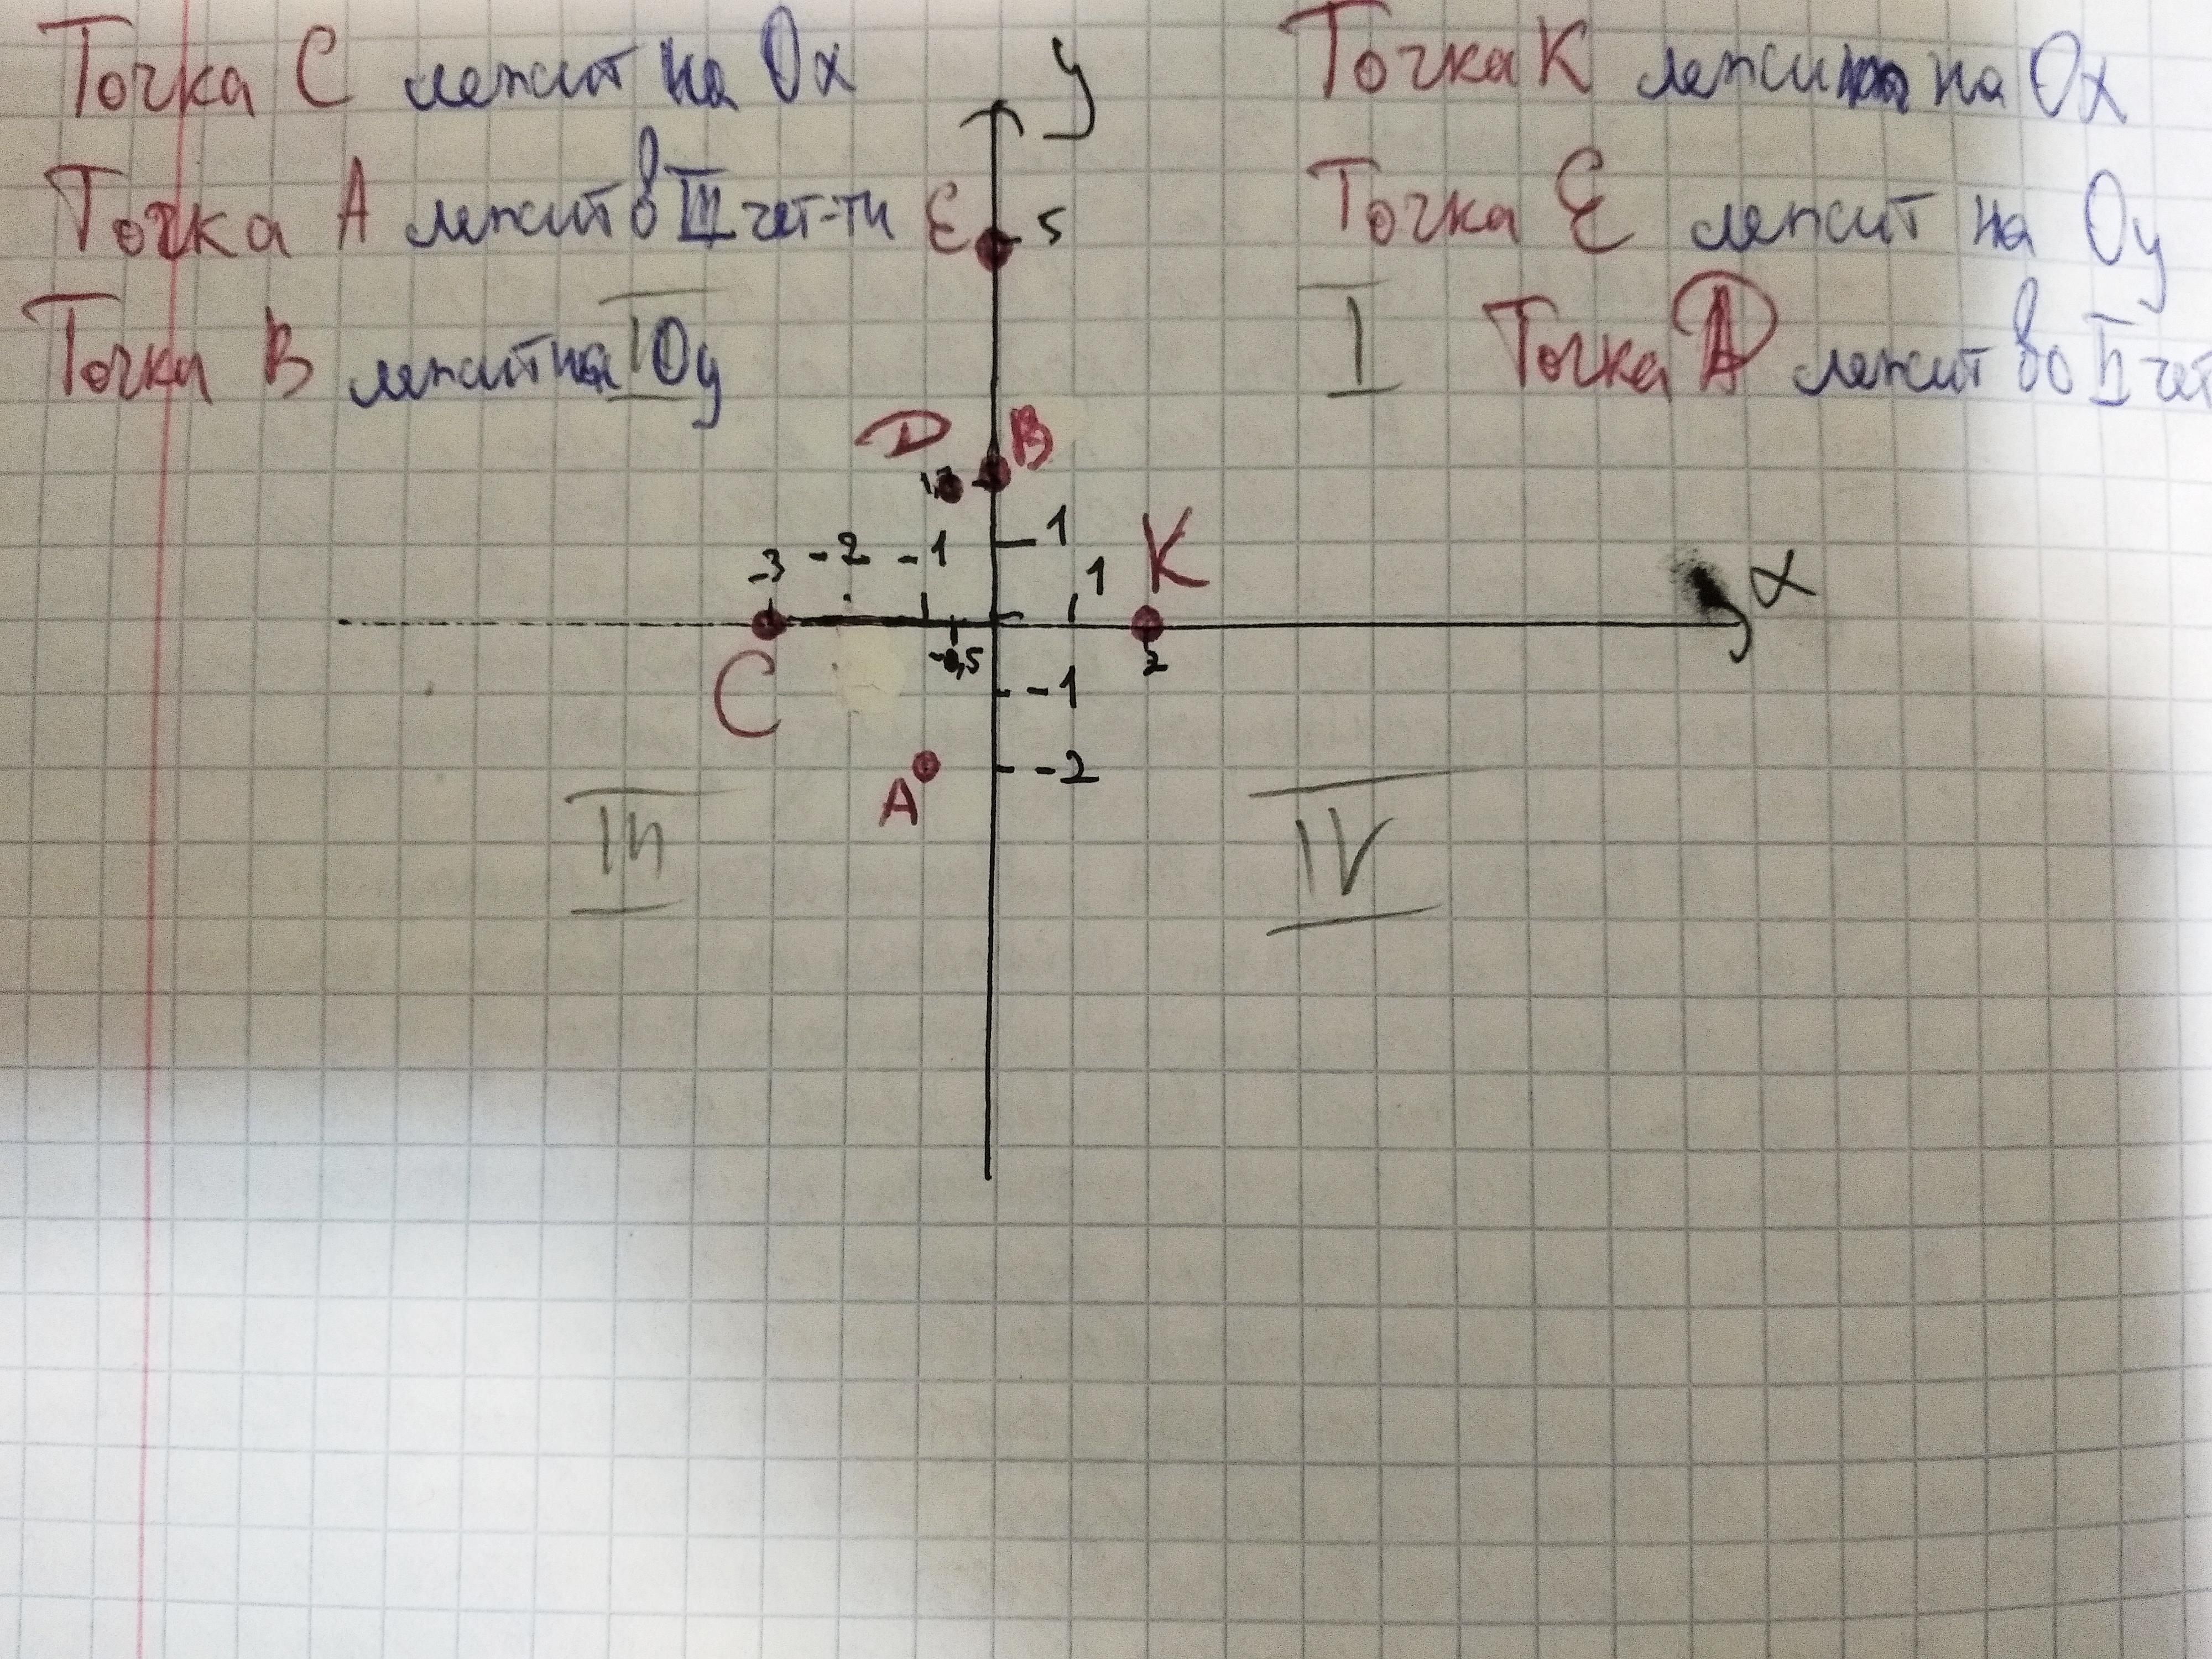 Точка C лежит на Ox
Точка A лежит в III чет-ти
Точка B лежит на Oy
Точка K лежит на Ox
Точка E лежит на Oy
Точка D лежит во II чет
I
II
y
E
5
D
B
1
K
-3
-2
-1
1
x
C
-0,5
2
-1
A
-2
III
IV